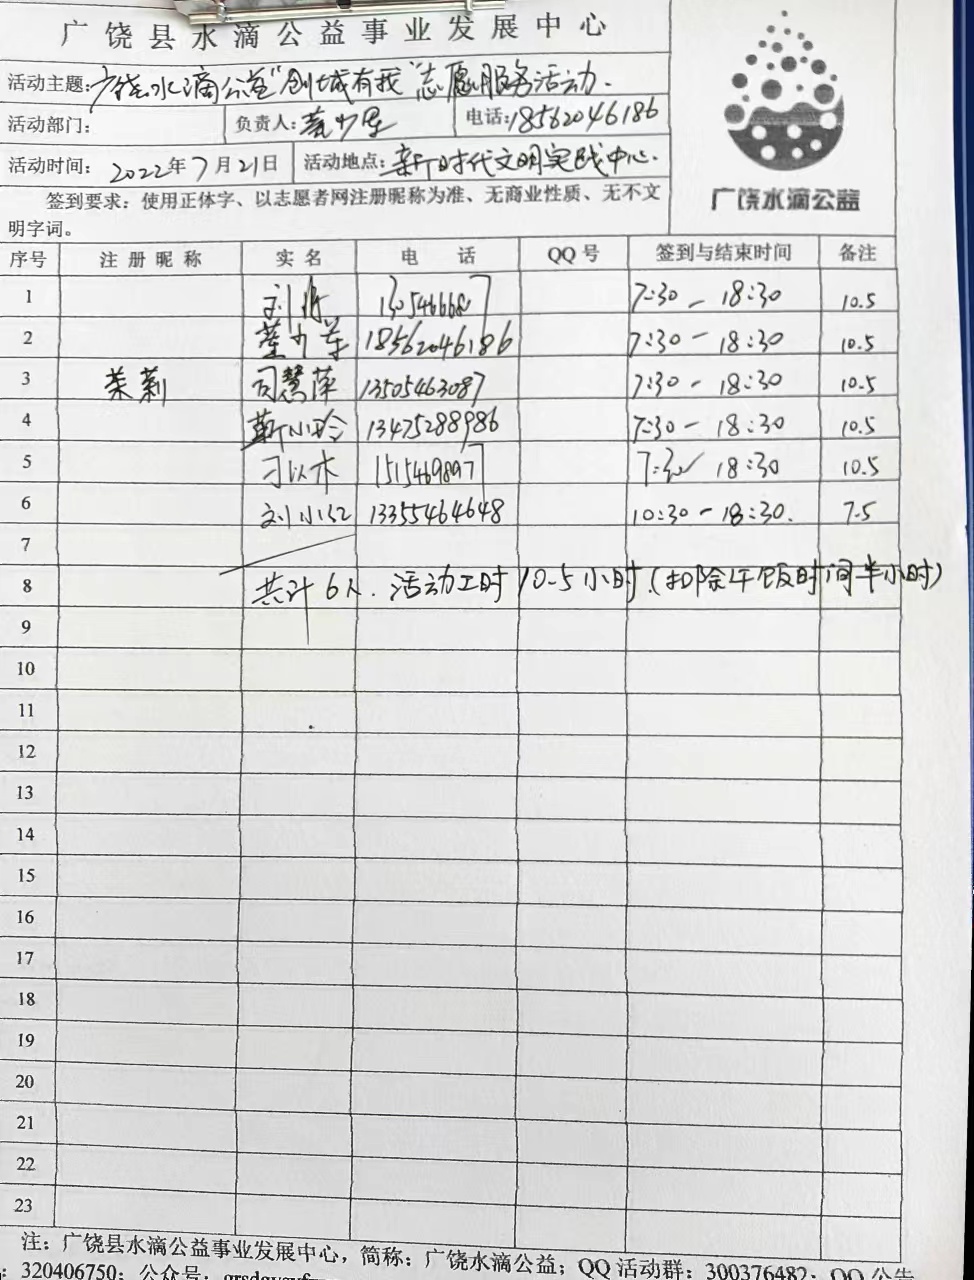 广饶县水滴公益事业发展中心
活动主题:广饶水滴公益"创城有我"志愿服务活动.
活动部门: 负责人: 电话:18562046186
活动时间: 2022年7月21日 活动地点:新时代文明实践中心.
签到要求：使用正体字、以志愿者网注册昵称为准、无商业性质、无不文
明字词。
广饶水滴公益
序号 注册昵称 实名 电话 QQ号 签到与结束时间 备注
1 刘 7:30-18:30 10.5
2 18562046186 7:30-18:30 10.5
3 茉莉 司慧萍 13505463087 7:30-18:30 10.5
4 靳小玲 13475288986 7:30-18:30 10.5
5 刁以木 15154698977 7:30 18:30 10.5
6 刘小红 13355464648 10:30-18:30. 7.5
7
8 共计6人.活动工时10.5小时.(扣除午饭时间半小时)
9
10
11
12
13
14
15
16
17
18
19
20
21
22
23
注：广饶县水滴公益事业发展中心，简称：广饶水滴公益；QQ活动群：300376482；QQ公告
320406750；公众号：